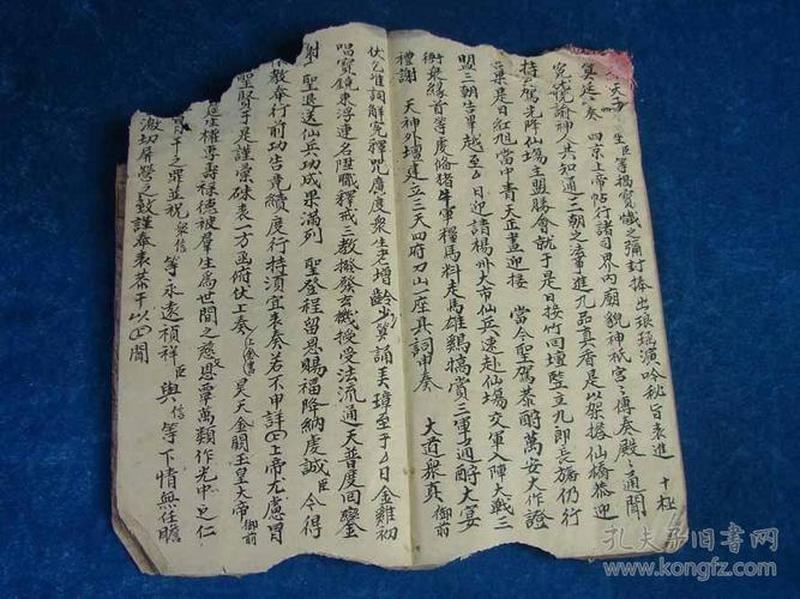 生臣等揭寶懺之彌封捧出琅瑤演吟秘旨表進 十極
四京上帝帖行諸司界內廟貌神祇宮〻傳奏殿〻通聞
諭神人共知通三朝之法事進九品真香是以架搭仙橋恭迎
駕光降仙塲主盟勝會就于是日接竹回壇豎立九郎長旛仍行
是日紅旭當中青天正晝迎接 當今聖駕恭酧萬安大作證
盟三朝告畢越至厶日迎請楊州大帝仙兵速赴仙塲交軍入陣大戰三
衆緣首等虔俻猪牛軍糧馬料走馬雄鷄犒賞三軍通酧大宴
禮謝 天神外壇建立三天四府刀山一座具詞申奏 大道衆真 御前
伏乞准詞解寃釋咒廣度衆生老增齡少算誦美璋至于厶日金雞初
唱寶鏡東浮連名陞職釋戒三教撥發玄機授受法流通天普度回鑾
謝 聖退送仙兵功成果滿列 聖登程留恩賜福降納虔誠 臣 令得
教奉行前功告完續度行持須宜表奏若不申詳 上帝尤慮冒
聖賢于是謹彙硃表一方函俯伏上奏 昊天金闕玉皇大帝 御前
權專壽祿德被羣生為世間之慈 恩覃萬類作光中之仁
干之罪並祝 衆信 等永遠禎祥 臣 與 信 等下情無任瞻
激切屏營之至謹奉表恭干以 聞
孔夫子旧书网
www.kongfz.com